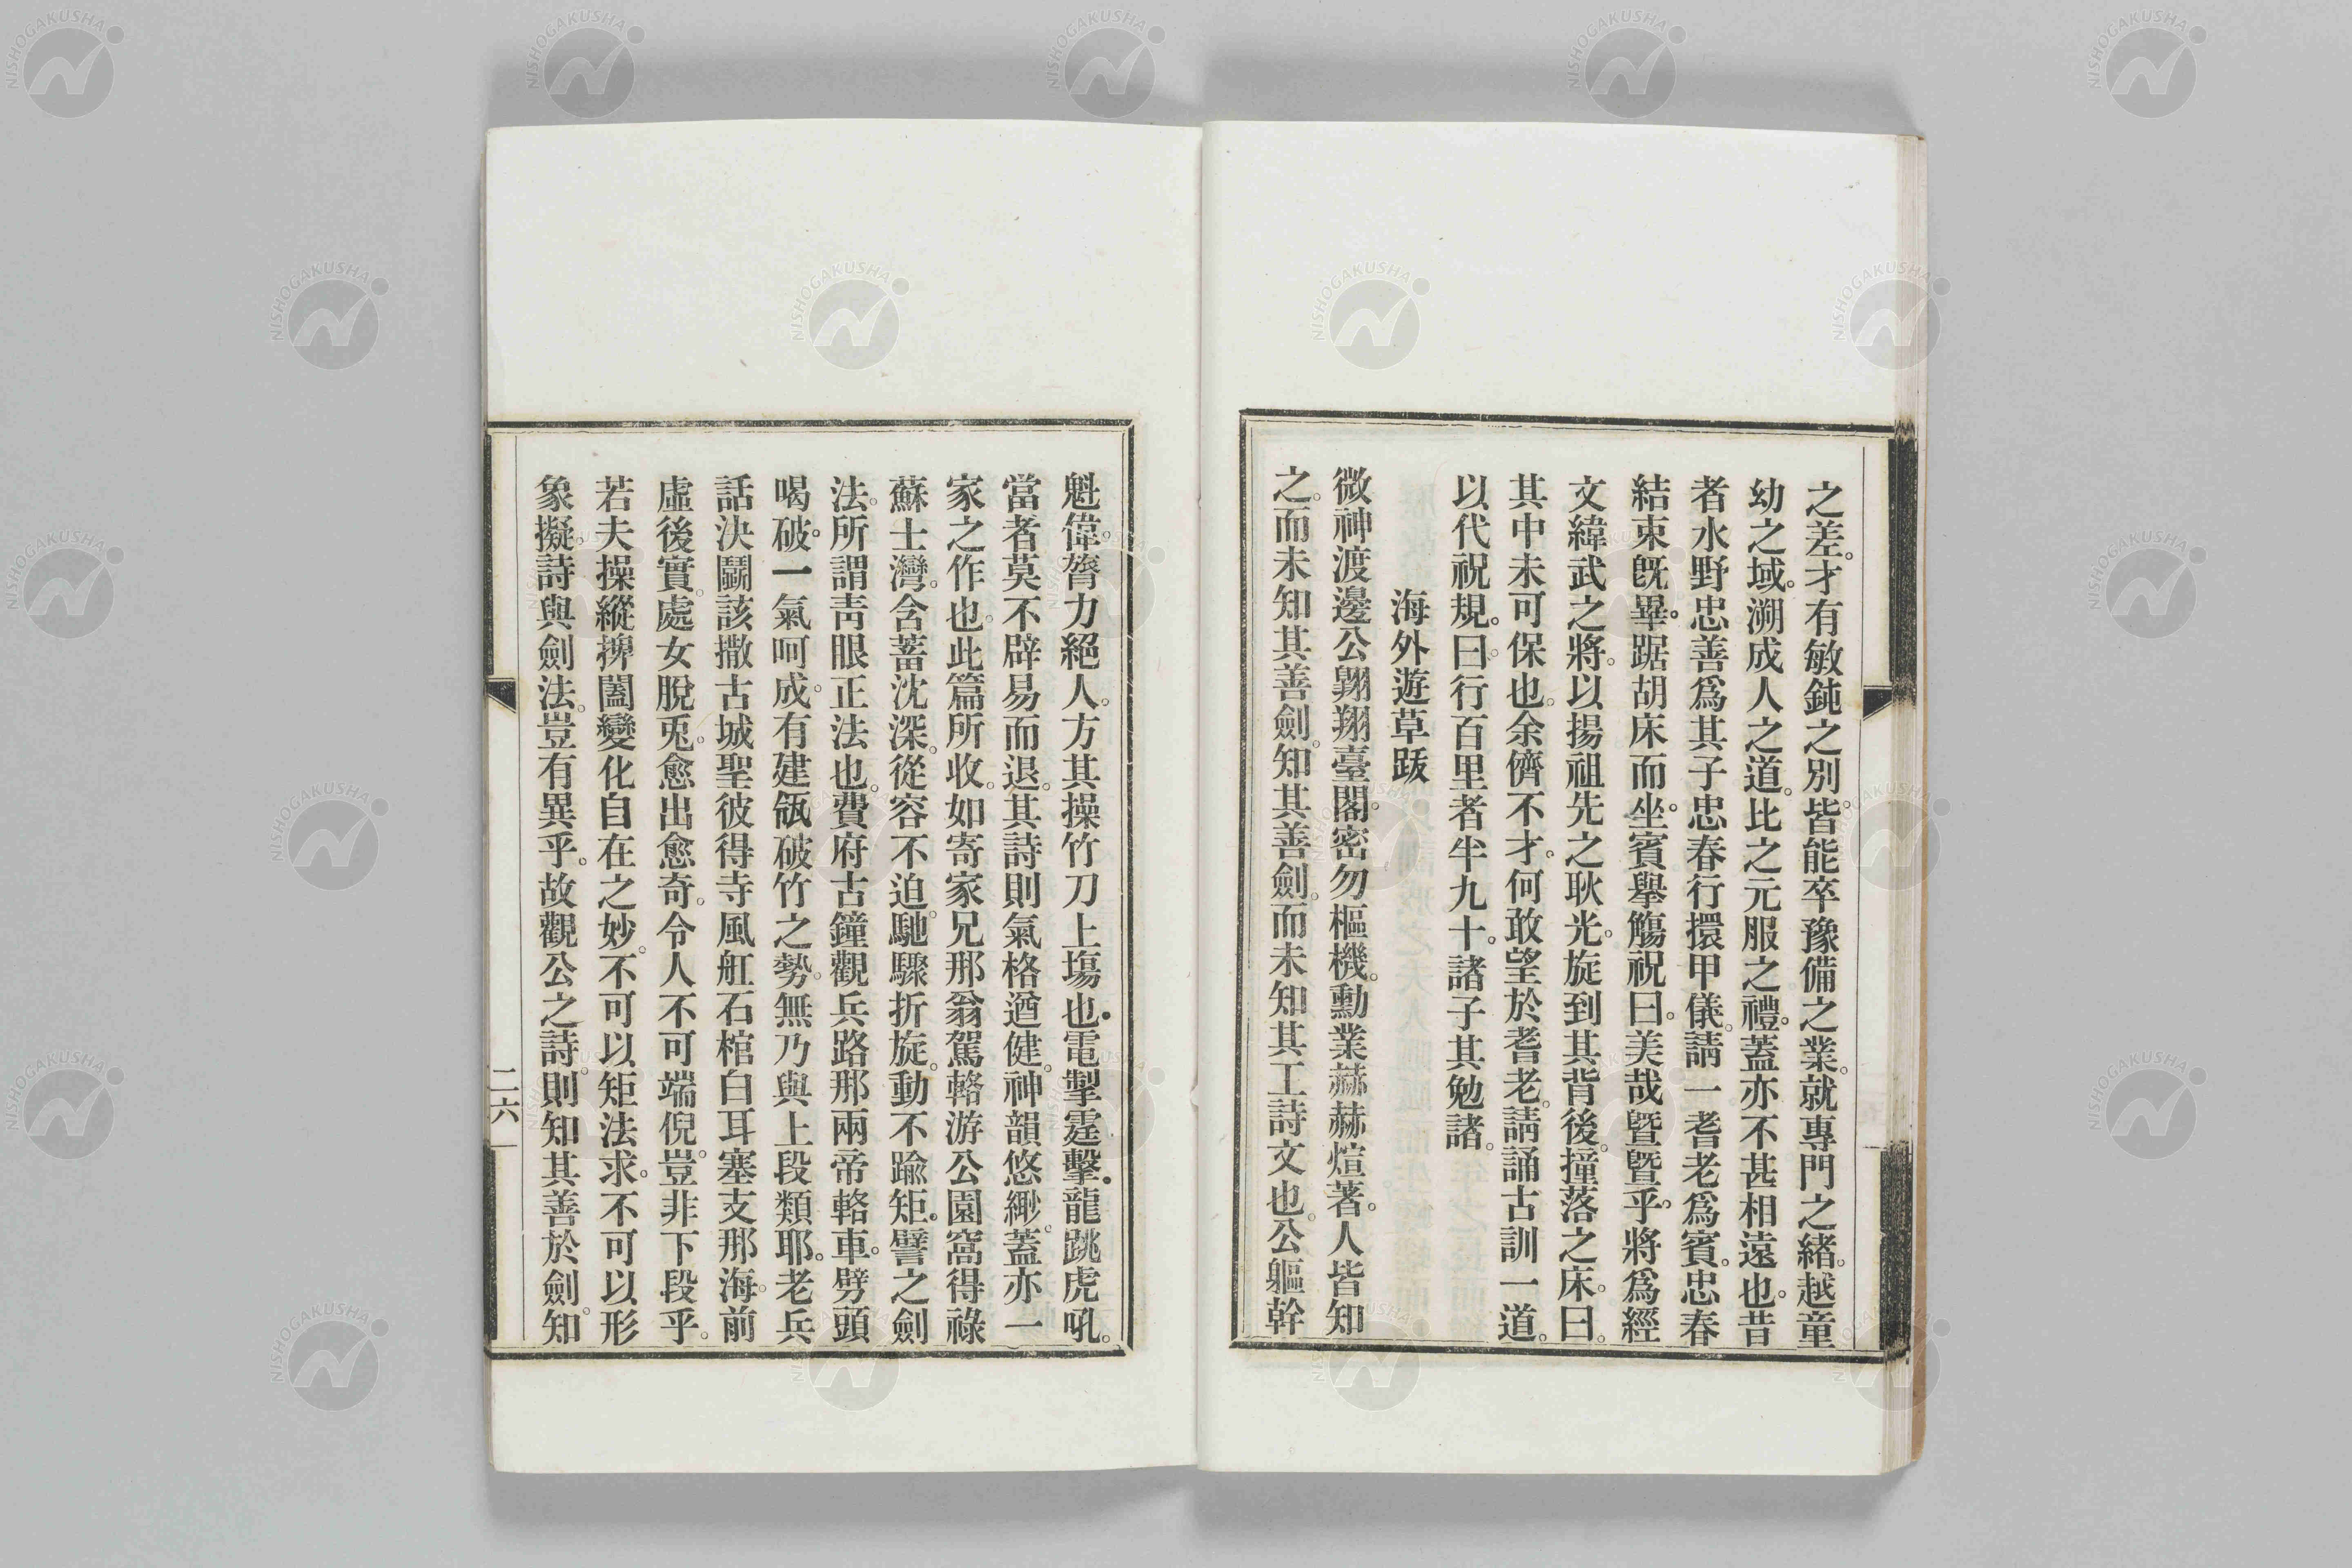 之差。才有敏鈍之別。皆能卒豫備之業。就專門之緒。越童
幼之域。溯成人之道。比之元服之禮。蓋亦不甚相遠也。昔
者水野忠善爲其子忠春行擐甲儀。請一耆老爲賓。忠春
結束旣畢。踞胡床而坐。賓擧觴祝曰。美哉曁曁乎。將爲經
文緯武之將。以揚祖先之耿光。旋到其背後。撞落之床。曰。
其中未可保也。余儕不才。何敢望於耆老。請誦古訓一道。
以代祝規。曰。行百里者半九十。諸子其勉諸。
海外遊草跋
微神渡邊公翺翔臺閣。密勿樞機。勳業赫赫煊著。人皆知
之。而未知其善劍。知其善劍。而未知其工詩文也。公軀幹
魁偉。膂力絕人。方其操竹刀上塲也。電掣霆擊。龍跳虎吼。
當者莫不辟易而退。其詩則氣格遒健。神韻悠緲。蓋亦一
家之作也。此篇所收。如寄家兄那翁駕輅游公園窩得祿
蘇士灣。含蓄沈深。從容不迫。馳驟折旋。動不踰矩。譬之劍
法。所謂靑眼正法也。費府古鐘觀兵路那兩帝輅車。劈頭
喝破。一氣呵成。有建瓴破竹之勢。無乃與上段類耶。老兵
話決鬪該撒古城聖彼得寺風舡石棺白耳塞支那海。前
虛後實。處女脫兎。愈出愈奇。令人不可端倪。豈非下段乎。
若夫操縱捭闔變化自在之妙。不可以矩法求。不可以形
象擬。詩與劍法。豈有異乎。故觀公之詩。則知其善於劍。知
二六
NISHOGAKUSHA